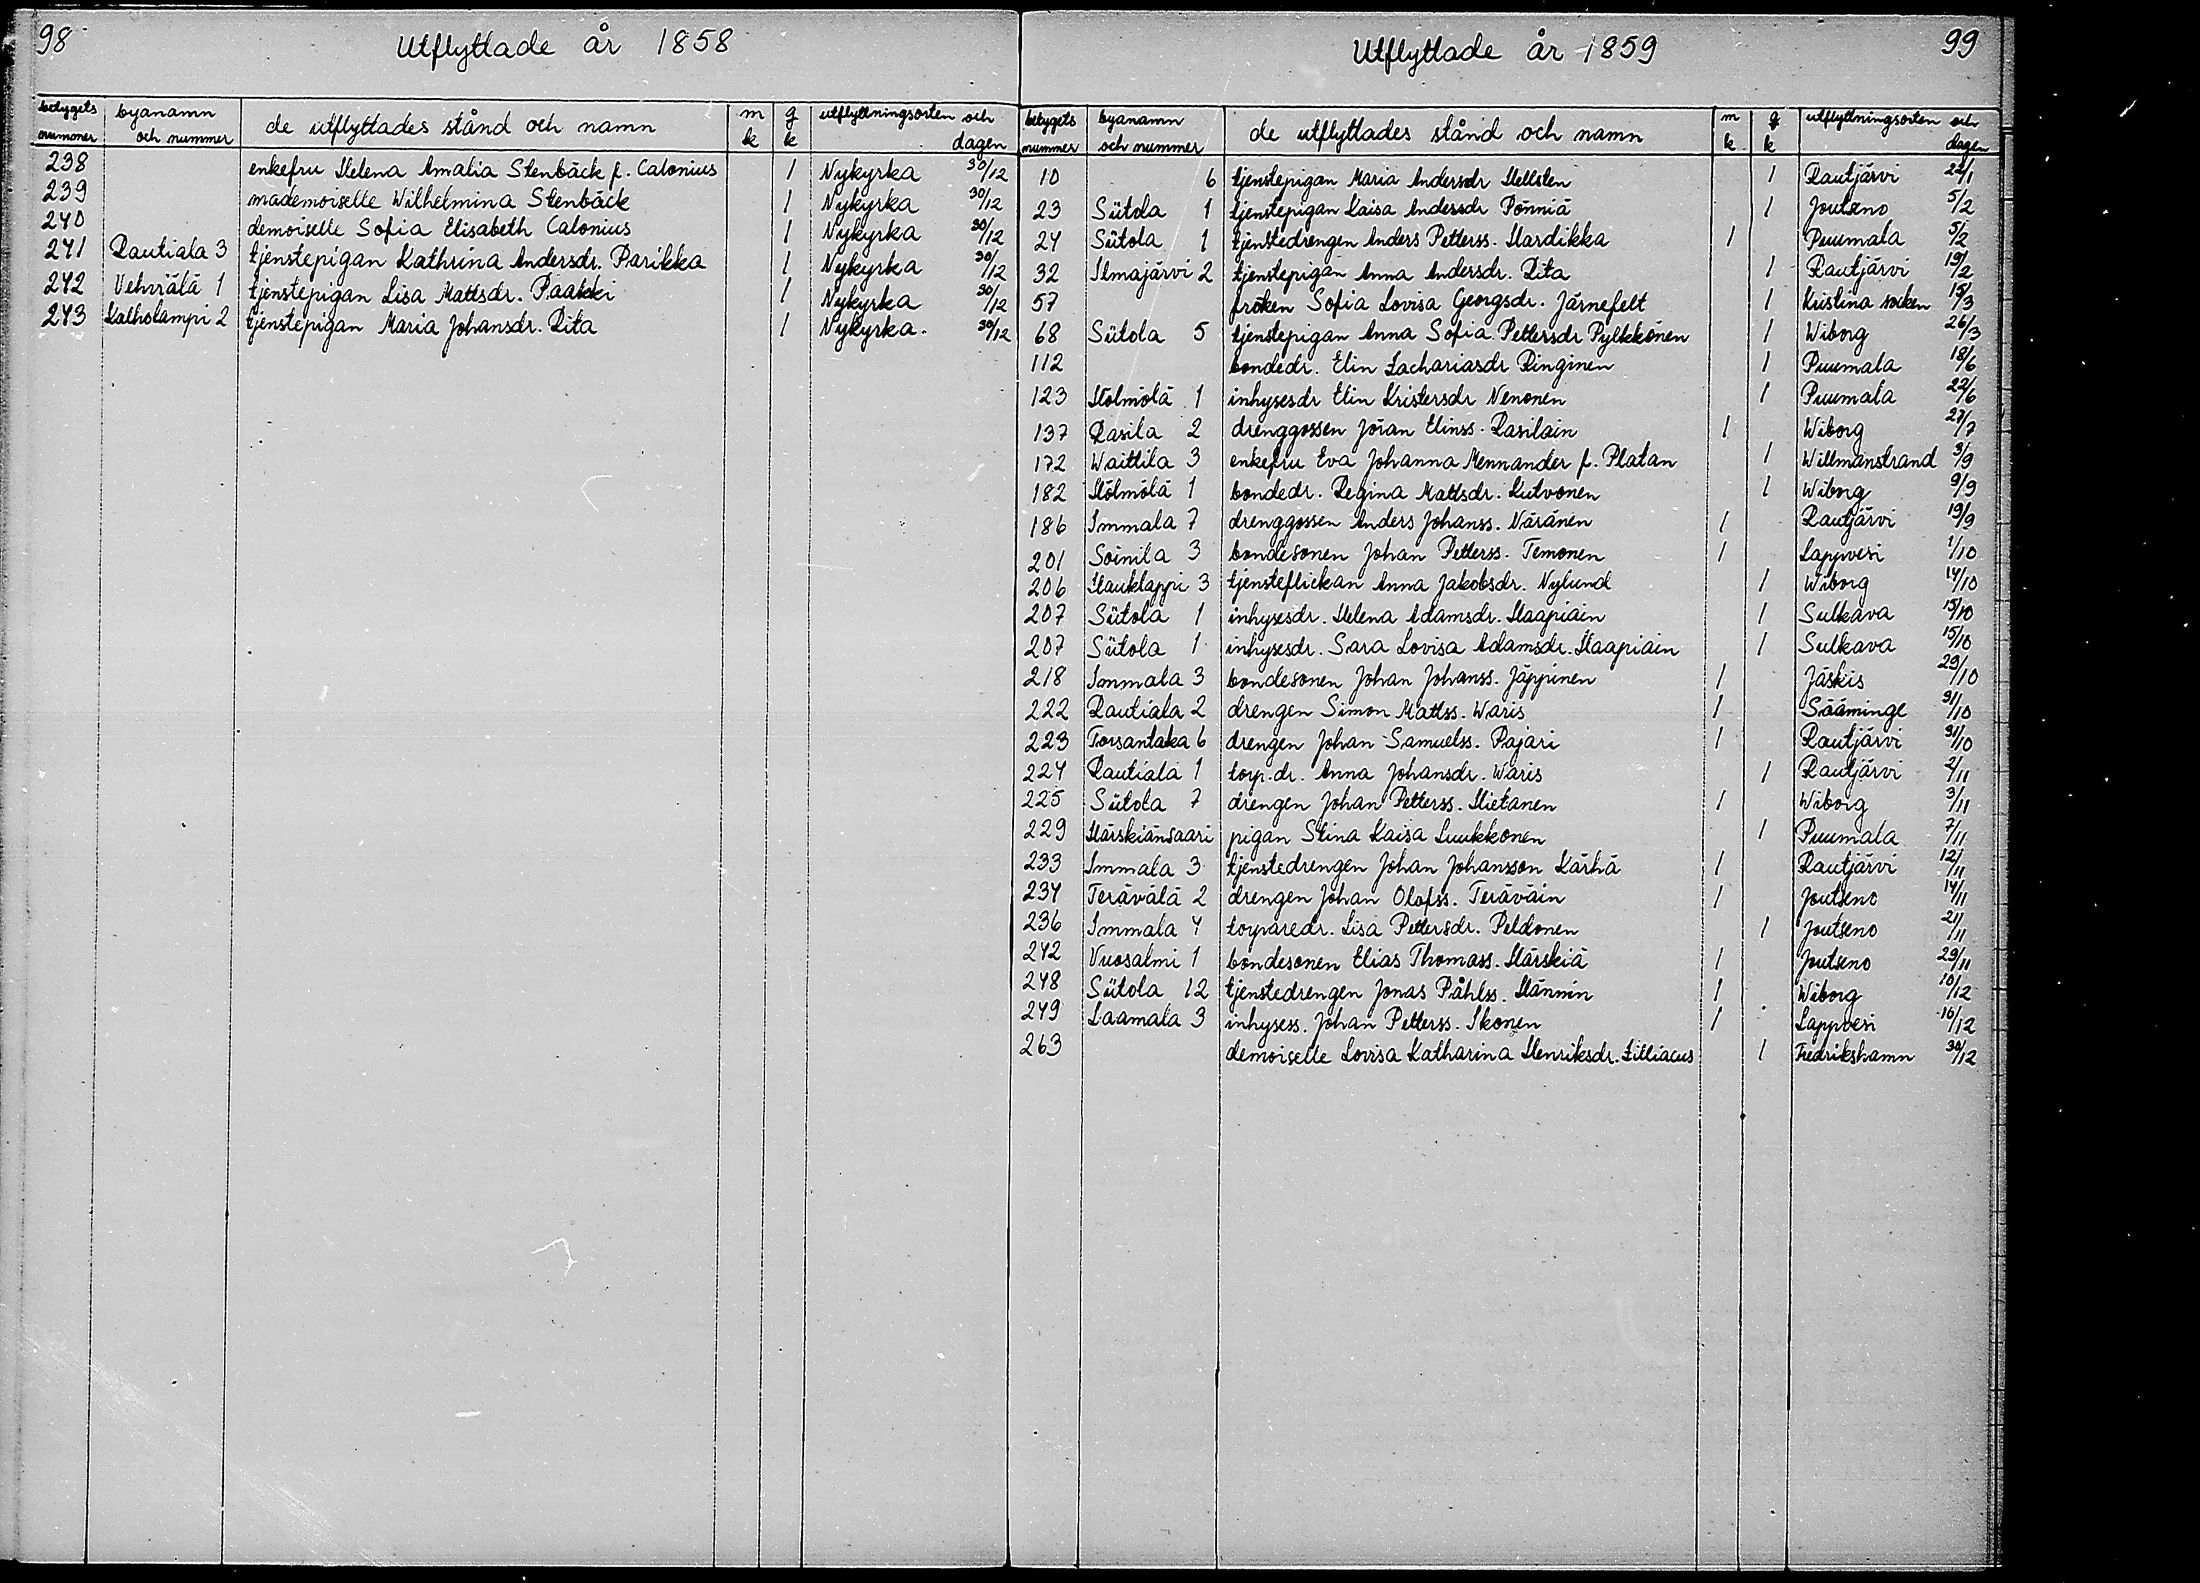 98
Utflyttade år 1858
betygets nummer | byanamn och nummer | de utflyttades stånd och namn | m k | q k | utflyttningsorten och dagen
238 enkefru Helena Amalia Stenbäck f. Calonius 1 Nykyrka 30/12
239 mademoiselle Wilhelmina Stenbäck 1 Nykyrka 30/12
240 demoiselle Sofia Elisabeth Calonius 1 Nykyrka 30/12
241 Rautiala 3 tjenstepigan Kathrina Andersdr. Parikka 1 Nykyrka 30/12
242 Vehvrälä 1 tjenstepigan Lisa Mattsdr. Paakki 1 Nykyrka 30/12
243 Kalholampi 2 tjenstepigan Maria Johansdr. Rita 1 Nykyrka. 30/12
Utflyttade år 1859
99
betygets nummer | byanamn och nummer | de utflyttades stånd och namn | m k | q k | utflyttningsorten och dagen
10 6 tjenstepigan Maria Andersdr Hellsten 1 Rautjärvi 22/1
23 Siitola 1 tjenstepigan Kaisa Andersdr Pönniä 1 Joutseno 5/2
24 Siitola 1 tjenstedrengen Anders Petterss. Hardikka 1 Puumala 5/2
32 Ilmajärvi 2 tjenstepigan Anna Andersdr. Rita 1 Rautjärvi 19/2
57 fröken Sofia Lovisa Georgsdr. Järnefelt 1 Kristina socken 15/3
68 Siitola 5 tjenstepigan Anna Sofia Pettersdr Pylkkönen 1 Wiborg 26/3
112 bondedr. Elin Zachariasdr Ringinen 1 Puumala 18/6
123 Hölmölä 1 inhysesdr Elin Kristersdr Nenonen 1 Puumala 22/6
137 Rasila 2 drenggossen Jöran Elinss. Rasilain 1 Wiborg 27/7
172 Waittila 3 enkefru Eva Johanna Mennander f. Platan 1 Willmanstrand 3/9
182 Hölmölä 1 bondedr. Regina Mattsdr. Kutvonen 1 Wiborg 9/9
186 Immala 7 drenggossen Anders Johanss. Näränen 1 Rautjärvi 19/9
201 Soinila 3 bondesonen Johan Petterss. Temonen 1 Lappvesi 1/10
206 Hauklappi 3 tjensteflickan Anna Jakobsdr. Nylund 1 Wiborg 14/10
207 Siitola 1 inhysesdr. Helena Adamsdr. Haapiain 1 Sulkava 15/10
207 Siitola 1 inhysesdr. Sara Lovisa Adamsdr. Haapiain 1 Sulkava 15/10
218 Immala 3 bondesonen Johan Johanss. Jäppinen 1 Jäskis 29/10
222 Rautiala 2 drengen Simon Mattss. Waris 1 Sääminge 31/10
223 Torsantaka 6 drengen Johan Samuelss. Pajari 1 Rautjärvi 31/10
224 Rautiala 1 torp.dr. Anna Johansdr. Waris 1 Rautjärvi 2/11
225 Siitola 7 drengen Johan Petterss. Hietanen 1 Wiborg 3/11
229 Härskiänsaari pigan Stina Kaisa Luukkonen 1 Puumala 7/11
233 Immala 3 tjenstedrengen Johan Johansson Kärhä 1 Rautjärvi 12/11
234 Terävälä 2 drengen Johan Olofss. Teräväin 1 Joutseno 14/11
236 Immala 4 torparedr. Lisa Pettersdr. Peldonen 1 Joutseno 21/11
242 Vuosalmi 1 bondesonen Elias Thomass. Härskiä 1 Joutseno 29/11
248 Siitola 12 tjenstedrengen Jonas Påhlss. Hännin 1 Wiborg 10/12
249 Laamala 3 inhysess. Johan Petterss. Ikonen 1 Lappvesi 16/12
263 demoiselle Lovisa Katharina Henriksdr. Lilliacus 1 Fredrikshamn 30/12